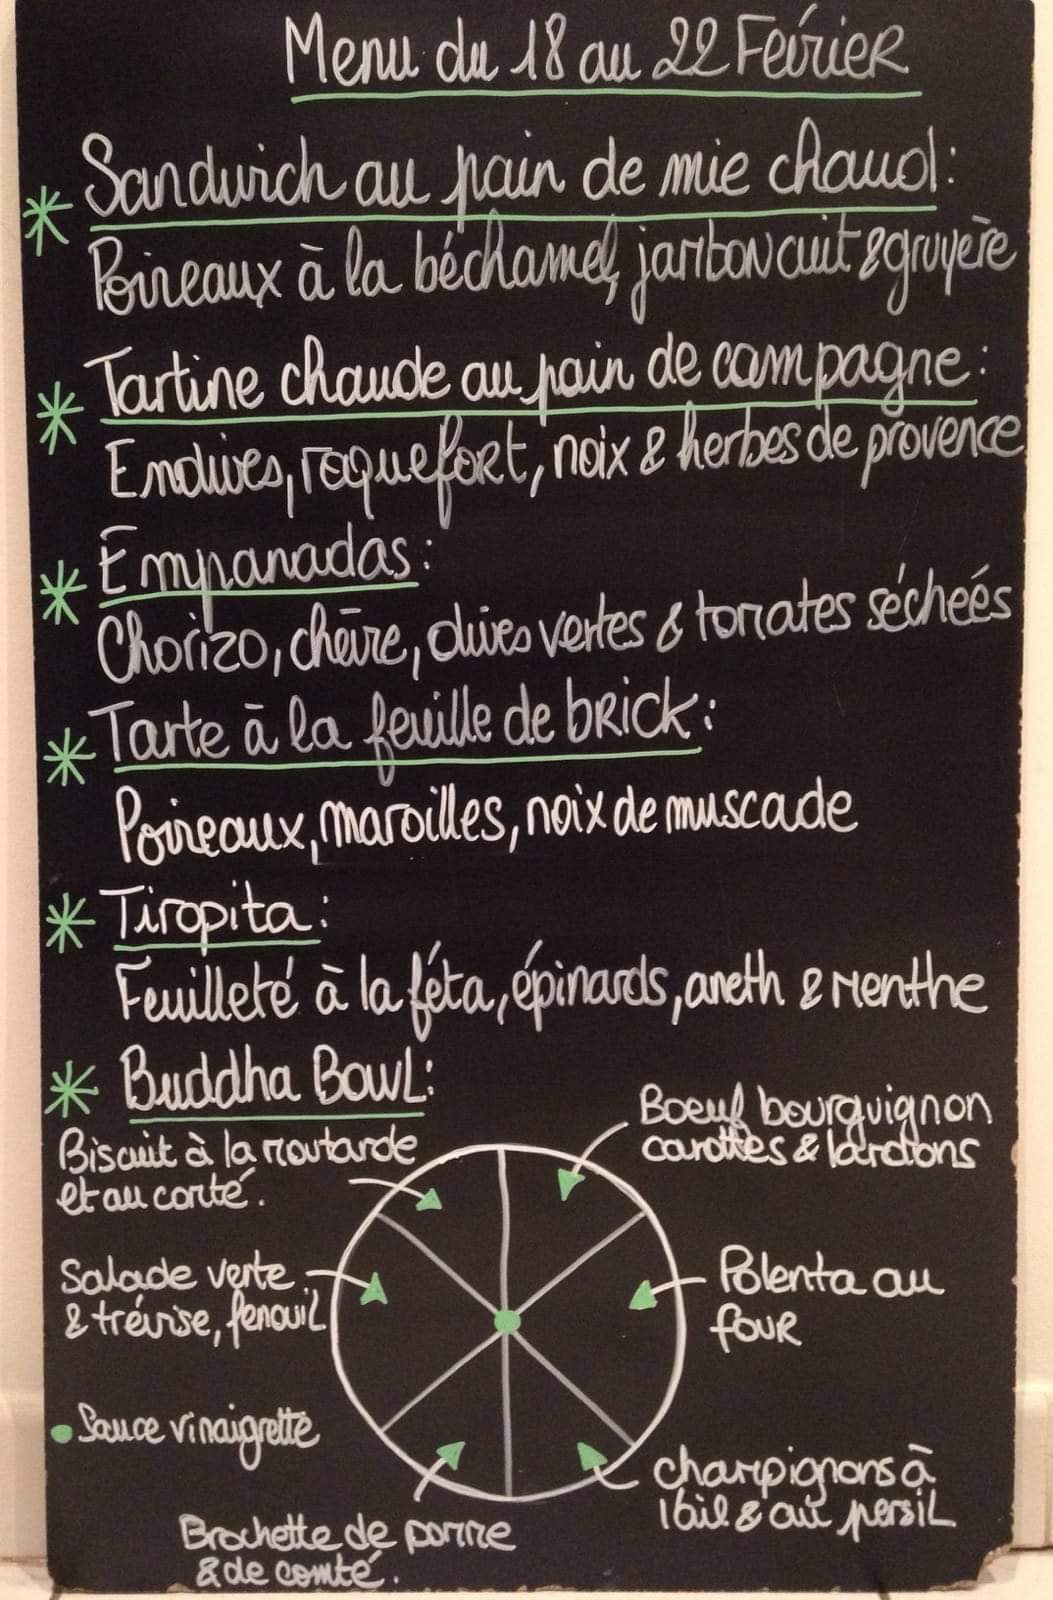 Menu du 18 au 22 Février
Sandwich au pain de mie chaud:
Poireaux à la béchamel, jambon cuit & gruyère
Tartine chaude au pain de campagne:
Endives, roquefort, noix & herbes de provence
Empanadas:
Chorizo, chèvre, olives vertes & tomates séchées
Tarte à la feuille de brick:
Poireaux, maroilles, noix de muscade
Tiropita:
Feuilleté à la féta, épinards, aneth & menthe
Buddha Bowl:
Boeuf bourguignon
carottes & lardons
Biscuit à la moutarde
et au comté.
Polenta au
four
Salade verte
& trévise, fenouil
Sauce vinaigrette
champignons à
l'ail & au persil
Brochette de pomme
& de comté.